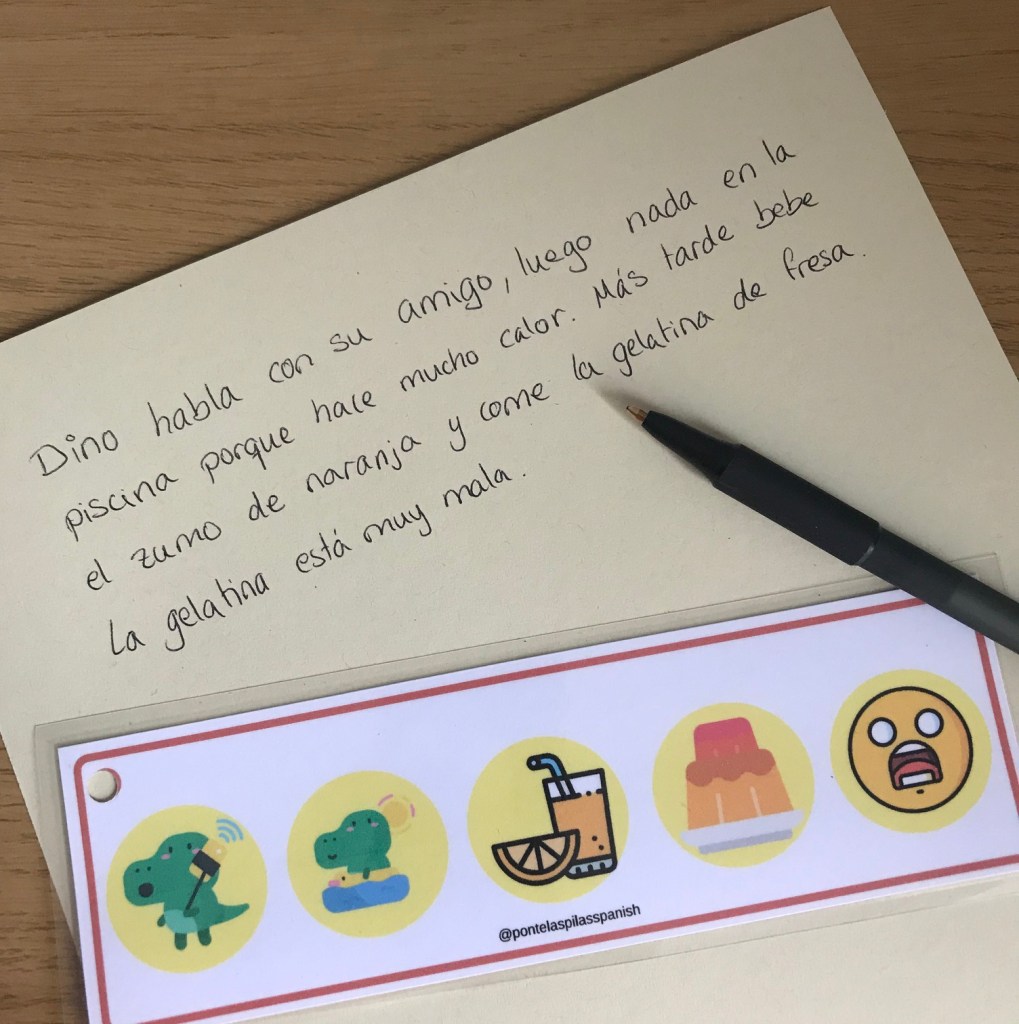 Dino habla con su amigo, luego nada en la
piscina porque hace mucho calor. Más tarde bebe
el zumo de naranja y come la gelatina de fresa.
La gelatina está muy mala.
@pontelaspilasspanish